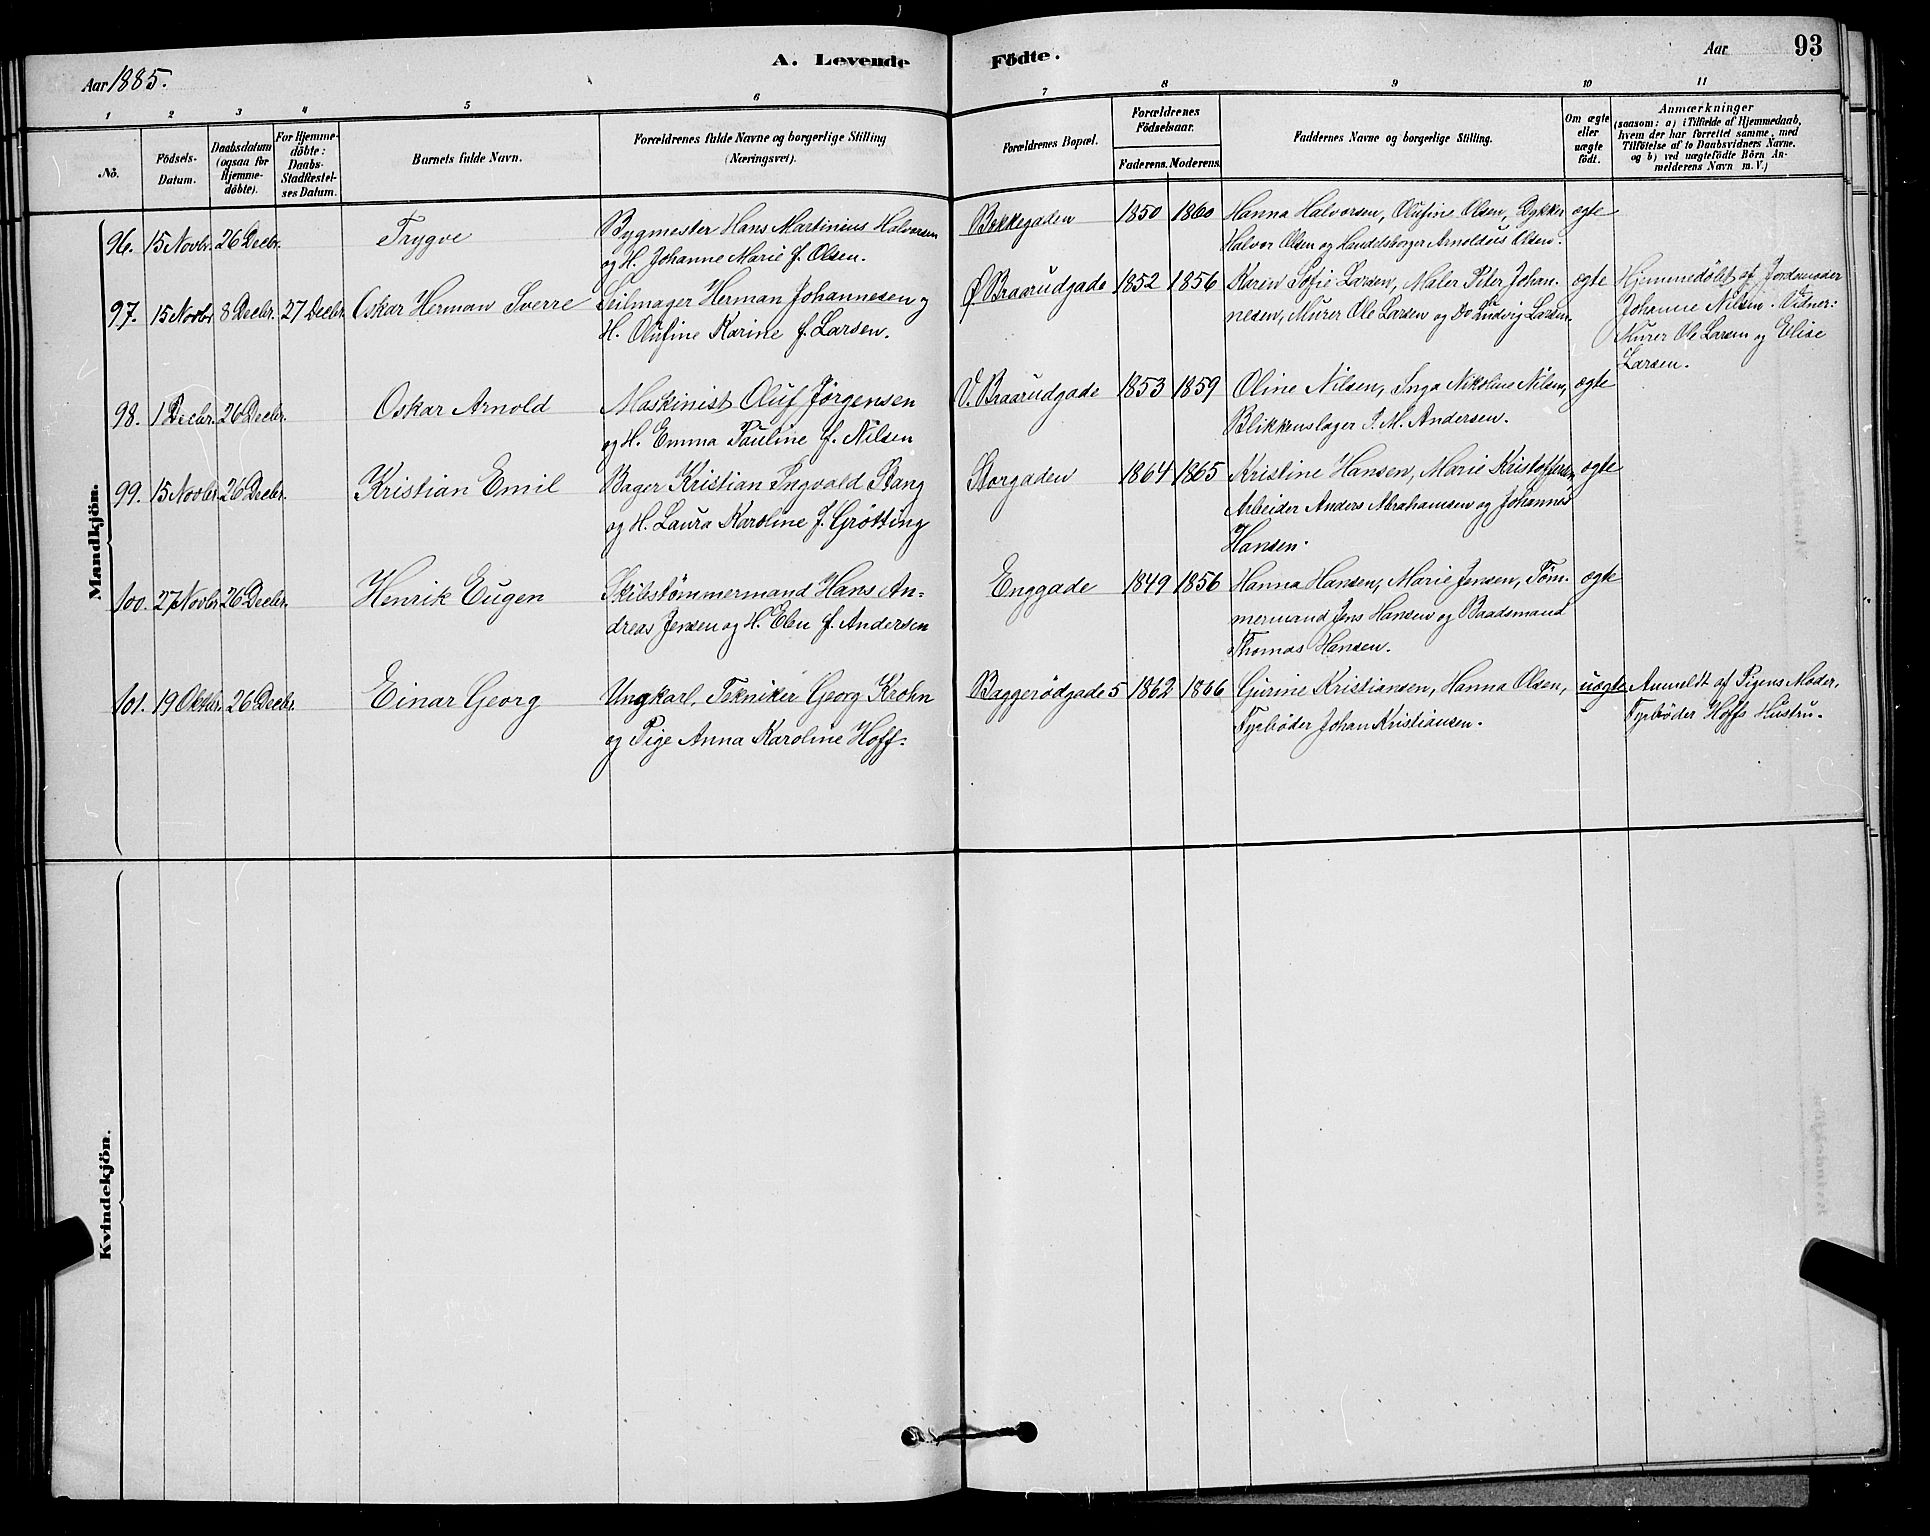 A. Levende Födte.
Aar 1885.
Aar 93
1 2 3 4 5 6 7 8 9 10 11
No.
Födsels-Datum.
Daabsdatum (ogsaa for Hjemmedöbte).
For Hjemmedöbte: Daabs-Stadfæstelses Datum.
Barnets fulde Navn.
Forældrenes fulde Navne og borgerlige Stilling (Næringsvei).
Forældrenes Bopæl.
Forældrenes Födselsaar.
Faderens. Moderens.
Faddernes Navne og borgerlige Stilling.
Om ægte eller uægte födt.
Anmærkninger (saasom: a) i Tilfælde af Hjemmedaab, hvem der har forrettet samme, med Tilföielse af to Daabsvidners Navne, og b) ved uægtefödte Börn Anmelderens Navn m. V.)
Mandkjön.
96. 15 Novbr. 26 Decbr. Trygve
Bygmester Hans Martinius Halvorsen
og H. Johanne Marie f. Olsen.
Bakkegaden 1850 1860
Hanna Halvorsen, Olufine Olsen, Dykker
Halvor Olsen og Handelsborger Arnoldus Olsen.
ægte
97. 15 Novbr. 8 Decbr. 27 Decbr. Oskar Herman Sverre
Seilmager Herman Johannesen og
H. Olufine Karine f. Larsen.
Ø Braarudgade 1852 1856
Karin Sofie Larsen, Maler Peter Johan-
nesen, Murer Ole Larsen og Do Ludvig Larsen.
ægte
Hjemmedøbt af Jordemoder
Johanne Nilsen. Vidner:
Murer Ole Larsen og Elise
Larsen.
98. 1 Decbr. 26 Decbr. Oskar Arnold
Maskinist Oluf Jørgensen
og H. Emma Pauline f. Nilsen
V. Braarudgade 1853 1859
Oline Nilsen, Inga Nikoline Nilsen,
Blikkenslager J. M. Andersen.
ægte
99. 15 Novbr. 26 Decbr. Kristian Emil
Bager Kristian Ingvald Stang
og H. Laura Karoline f. Grøtting
Storgaden 1864 1865
Kristine Hansen, Marie Kristoffersen,
Arbeider Anders Abrahamsen og Johannes
Hansen.
ægte
100. 27 Novbr 26 Decbr. Henrik Eugen
Skibstømmermand Hans An-
dreas Jensen og H. Elen f. Andersen
Enggade 1849 1856
Hanna Hansen, Marie Jensen, Tøm-
mermand Jens Hansen og Baadsmand
Thomas Hansen.
ægte
101. 19 Oktbr. 26 Decbr. Einar Georg
Ungkarl, Tekniker Georg Krohn
og Pige Anna Karoline Hoff.
Baggerødgade 5 1862 1866
Gurine Kristiansen, Hanna Olsen,
Fyrbøder Johan Kristiansen.
uægte
Anmeldt af Pigens Moder,
Fyrbøder Hoffs Hustru.
Kvindekjön.